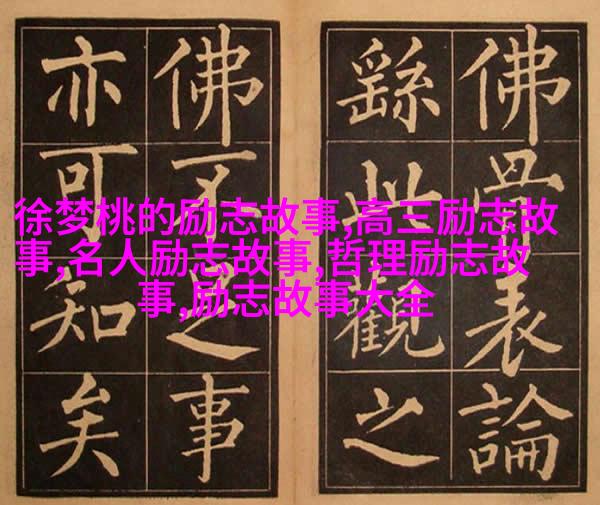 佛骨表論
繇此觀之
佛不足事
亦可知矣
徐梦桃的励志故事,高三励志故
事,名人励志故事,哲理励志故
事,励志故事大全